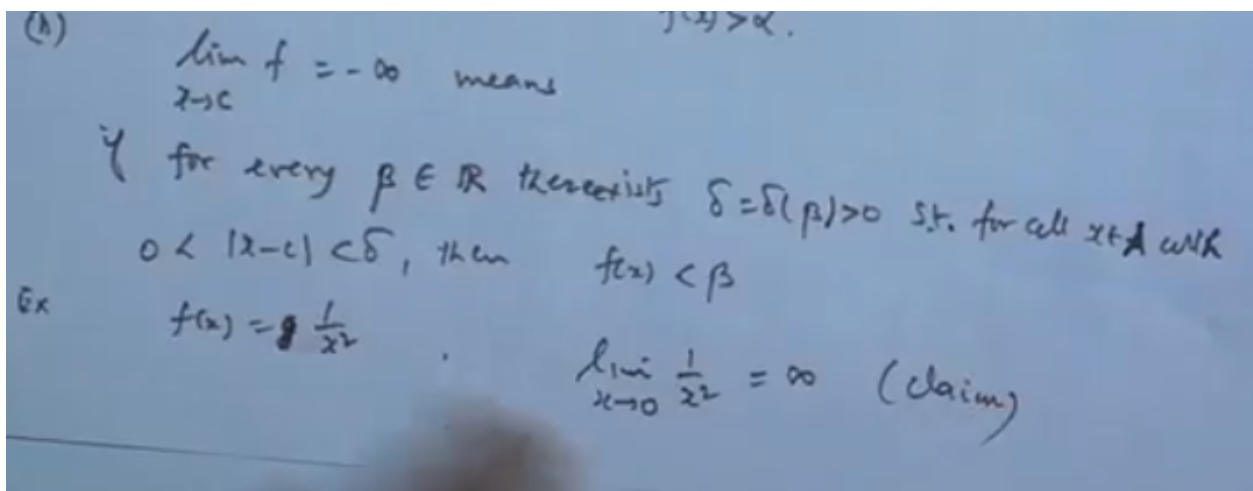 (h) f(x) > α.
lim f = -∞ means
x→c
if for every β ∈ ℝ there exists δ = δ(β) > 0 s.t. for all x ∈ A with
0 < |x-c| < δ, then f(x) < β
Ex f(x) = 1/x² . lim 1/x² = ∞ (claim)
x→0